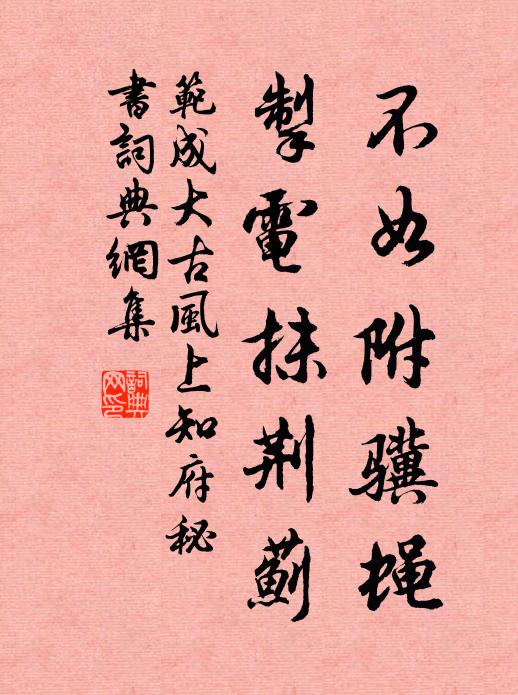 不如附骥蝇
掣電抹荆薊
範成大古風上知府秘
書詞典網集
詞典網印